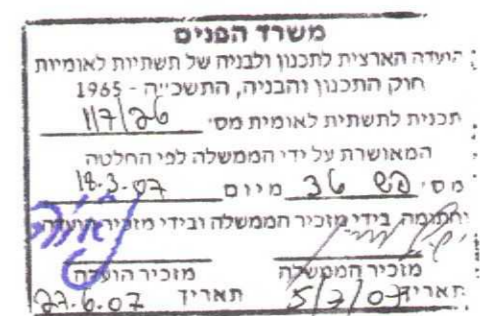 משרד הפנים
הועדה הארצית לתכנון ולבניה של תשתיות לאומיות
חוק התכנון והבניה, התשכ"ה - 1965
תכנית לתשתית לאומית מס'
המאושרת על ידי הממשלה לפי החלטה
מס' 36 מיום 18.3.07
חתומה בידי מזכיר הממשלה ובידי מזכיר הועדה
מזכיר הממשלה מזכיר הועדה
תאריך 5/7/07 תאריך 27.6.07